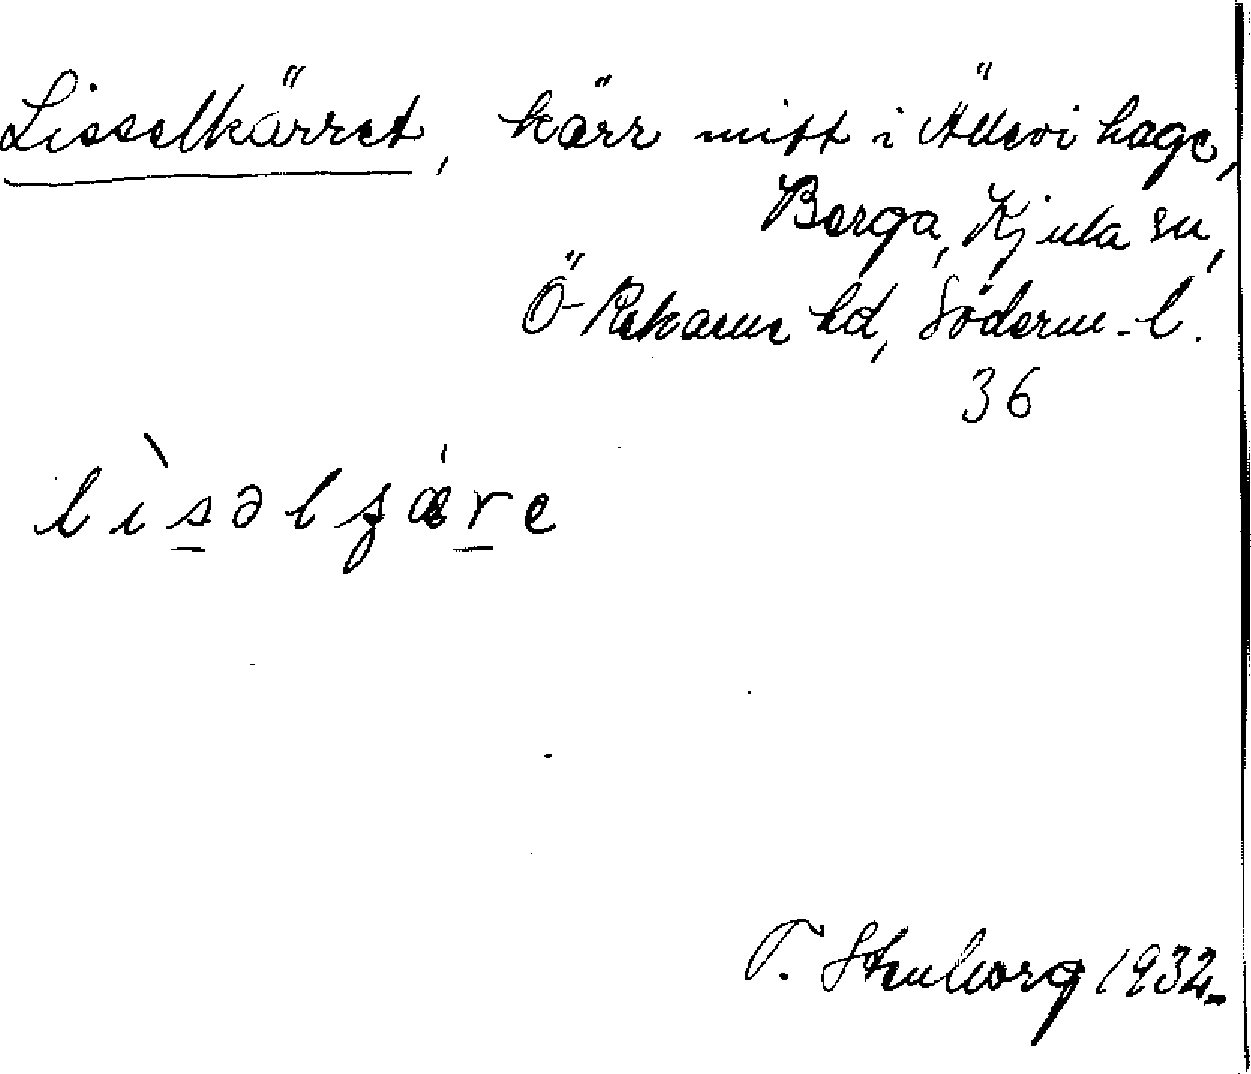 Lisselkärret, kärr mitt i Ällevi hage,
Berga, Kjula sn,
Ö-Rekarne hd, Söderm-l.
36
T. Stenborg 1932.